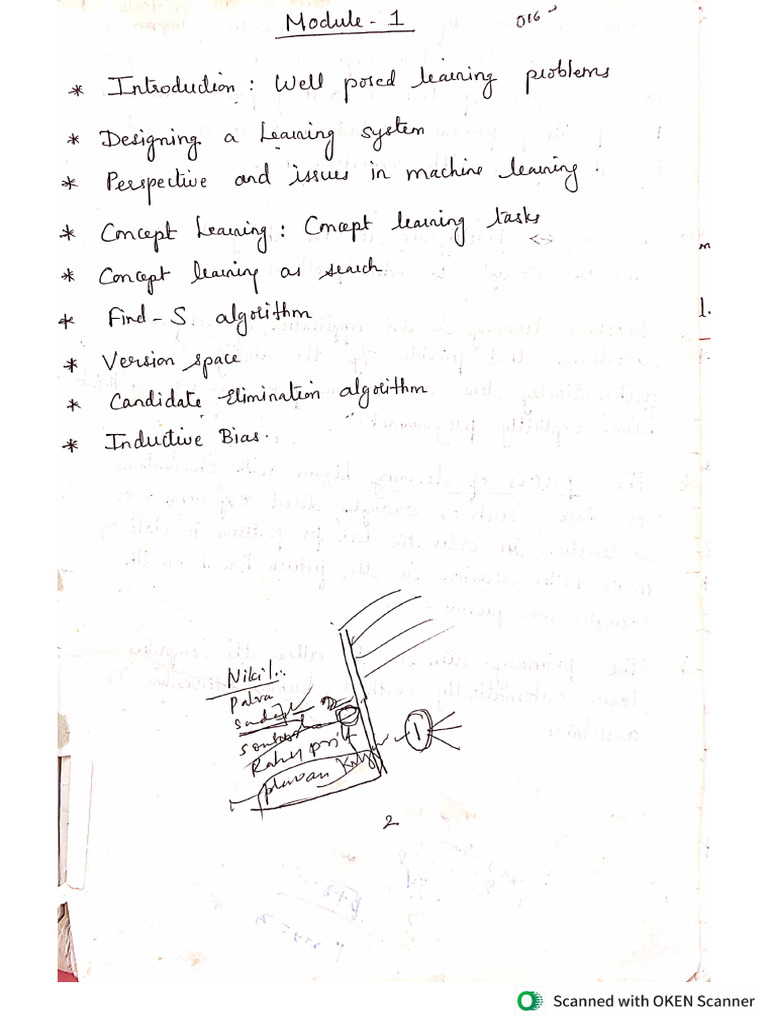 Module - 1
016
* Introduction : Well posed learning problems
* Designing a Learning system
* Perspective and issues in machine learning .
* Concept Learning : Concept learning tasks
* Concept learning as search
* Find - S algorithm
* Version space
* Candidate Elimination algorithm
* Inductive Bias.
Nikil..
2
Scanned with OKEN Scanner